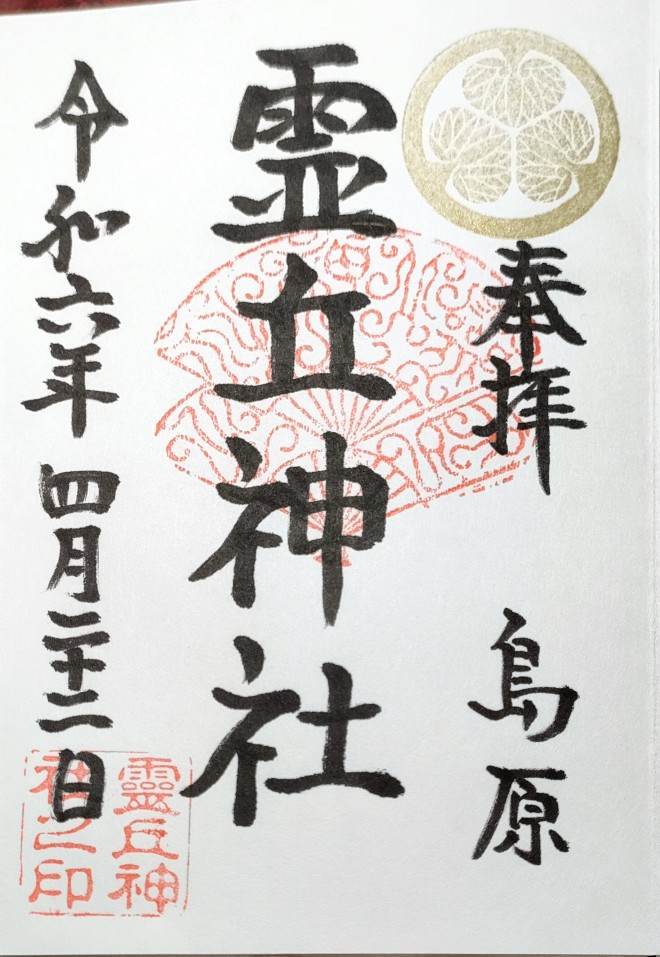 奉拝 島原
霊丘神社
令和六年四月二十二日
靈丘神
社之印